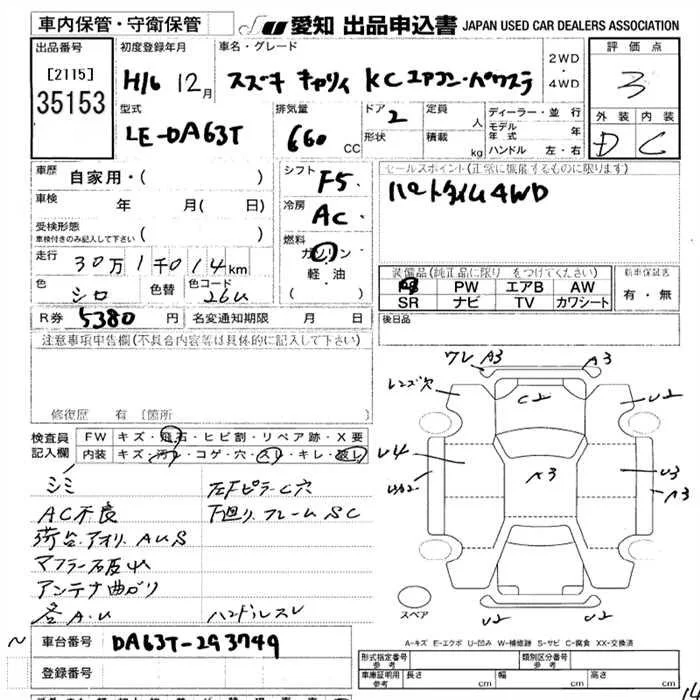 車内保管・守衛保管
JU 愛知 出品申込書 JAPAN USED CAR DEALERS ASSOCIATION
出品番号
[2115]
35153
初度登録年月
H16 12月
車名・グレード
スズキ キャリィ KCエアコン・パワステ
2WD
・
4WD
評価点
3
型式
LE-DA63T
排気量
660 CC
ドア
2
形状
定員
人
積載
kg
ディーラー・並行
モデル年式 年
ハンドル 左・右
外装 内装
D C
車歴
自家用・( )
車検 年 月( 日)
受検形態
車検付きのみ記入して下さい ( )
走行 30万1千014km
色 シロ 色替 色コード 26U
R券 5380 円 名変通知期限 月 日
シフト
F5
冷房
AC
燃料
ガソリン
軽・油
( )
セールスポイント(正常に機能するものに限ります)
パートタイム4WD
装備品(純正品に限り○をつけてください)
PS PW エアB AW
SR ナビ TV カワシート
新車保証書
有・無
後日品
注意事項申告欄(不具合内容等は具体的に記入して下さい)
修復歴 有 [箇所 ]
検査員記入欄
FW キズ・飛石・ヒビ割・リペア跡・X要
内装 キズ・汚レ・コゲ・穴・スレ・キレ・破レ
シミ
AC不良
荷台.アオリ AUS
マフラー破れ
アンテナ曲がり
各A.U
左Fピラー C穴
下廻り.フレームSC
ハンドルスレ
ワレ A3
A3
レンズ穴
C2
U2
U4
A3
U3
A3
U2
U2
スペア
A-キズ E-エクボ U-凹み W-補修跡 S-サビ C-腐食 XX-交換済
車台番号 DA63T-293749
登録番号
形式指定番号 参考
類別区分番号 参考
車庫証明用 参考
長さ cm
幅 cm
高さ cm